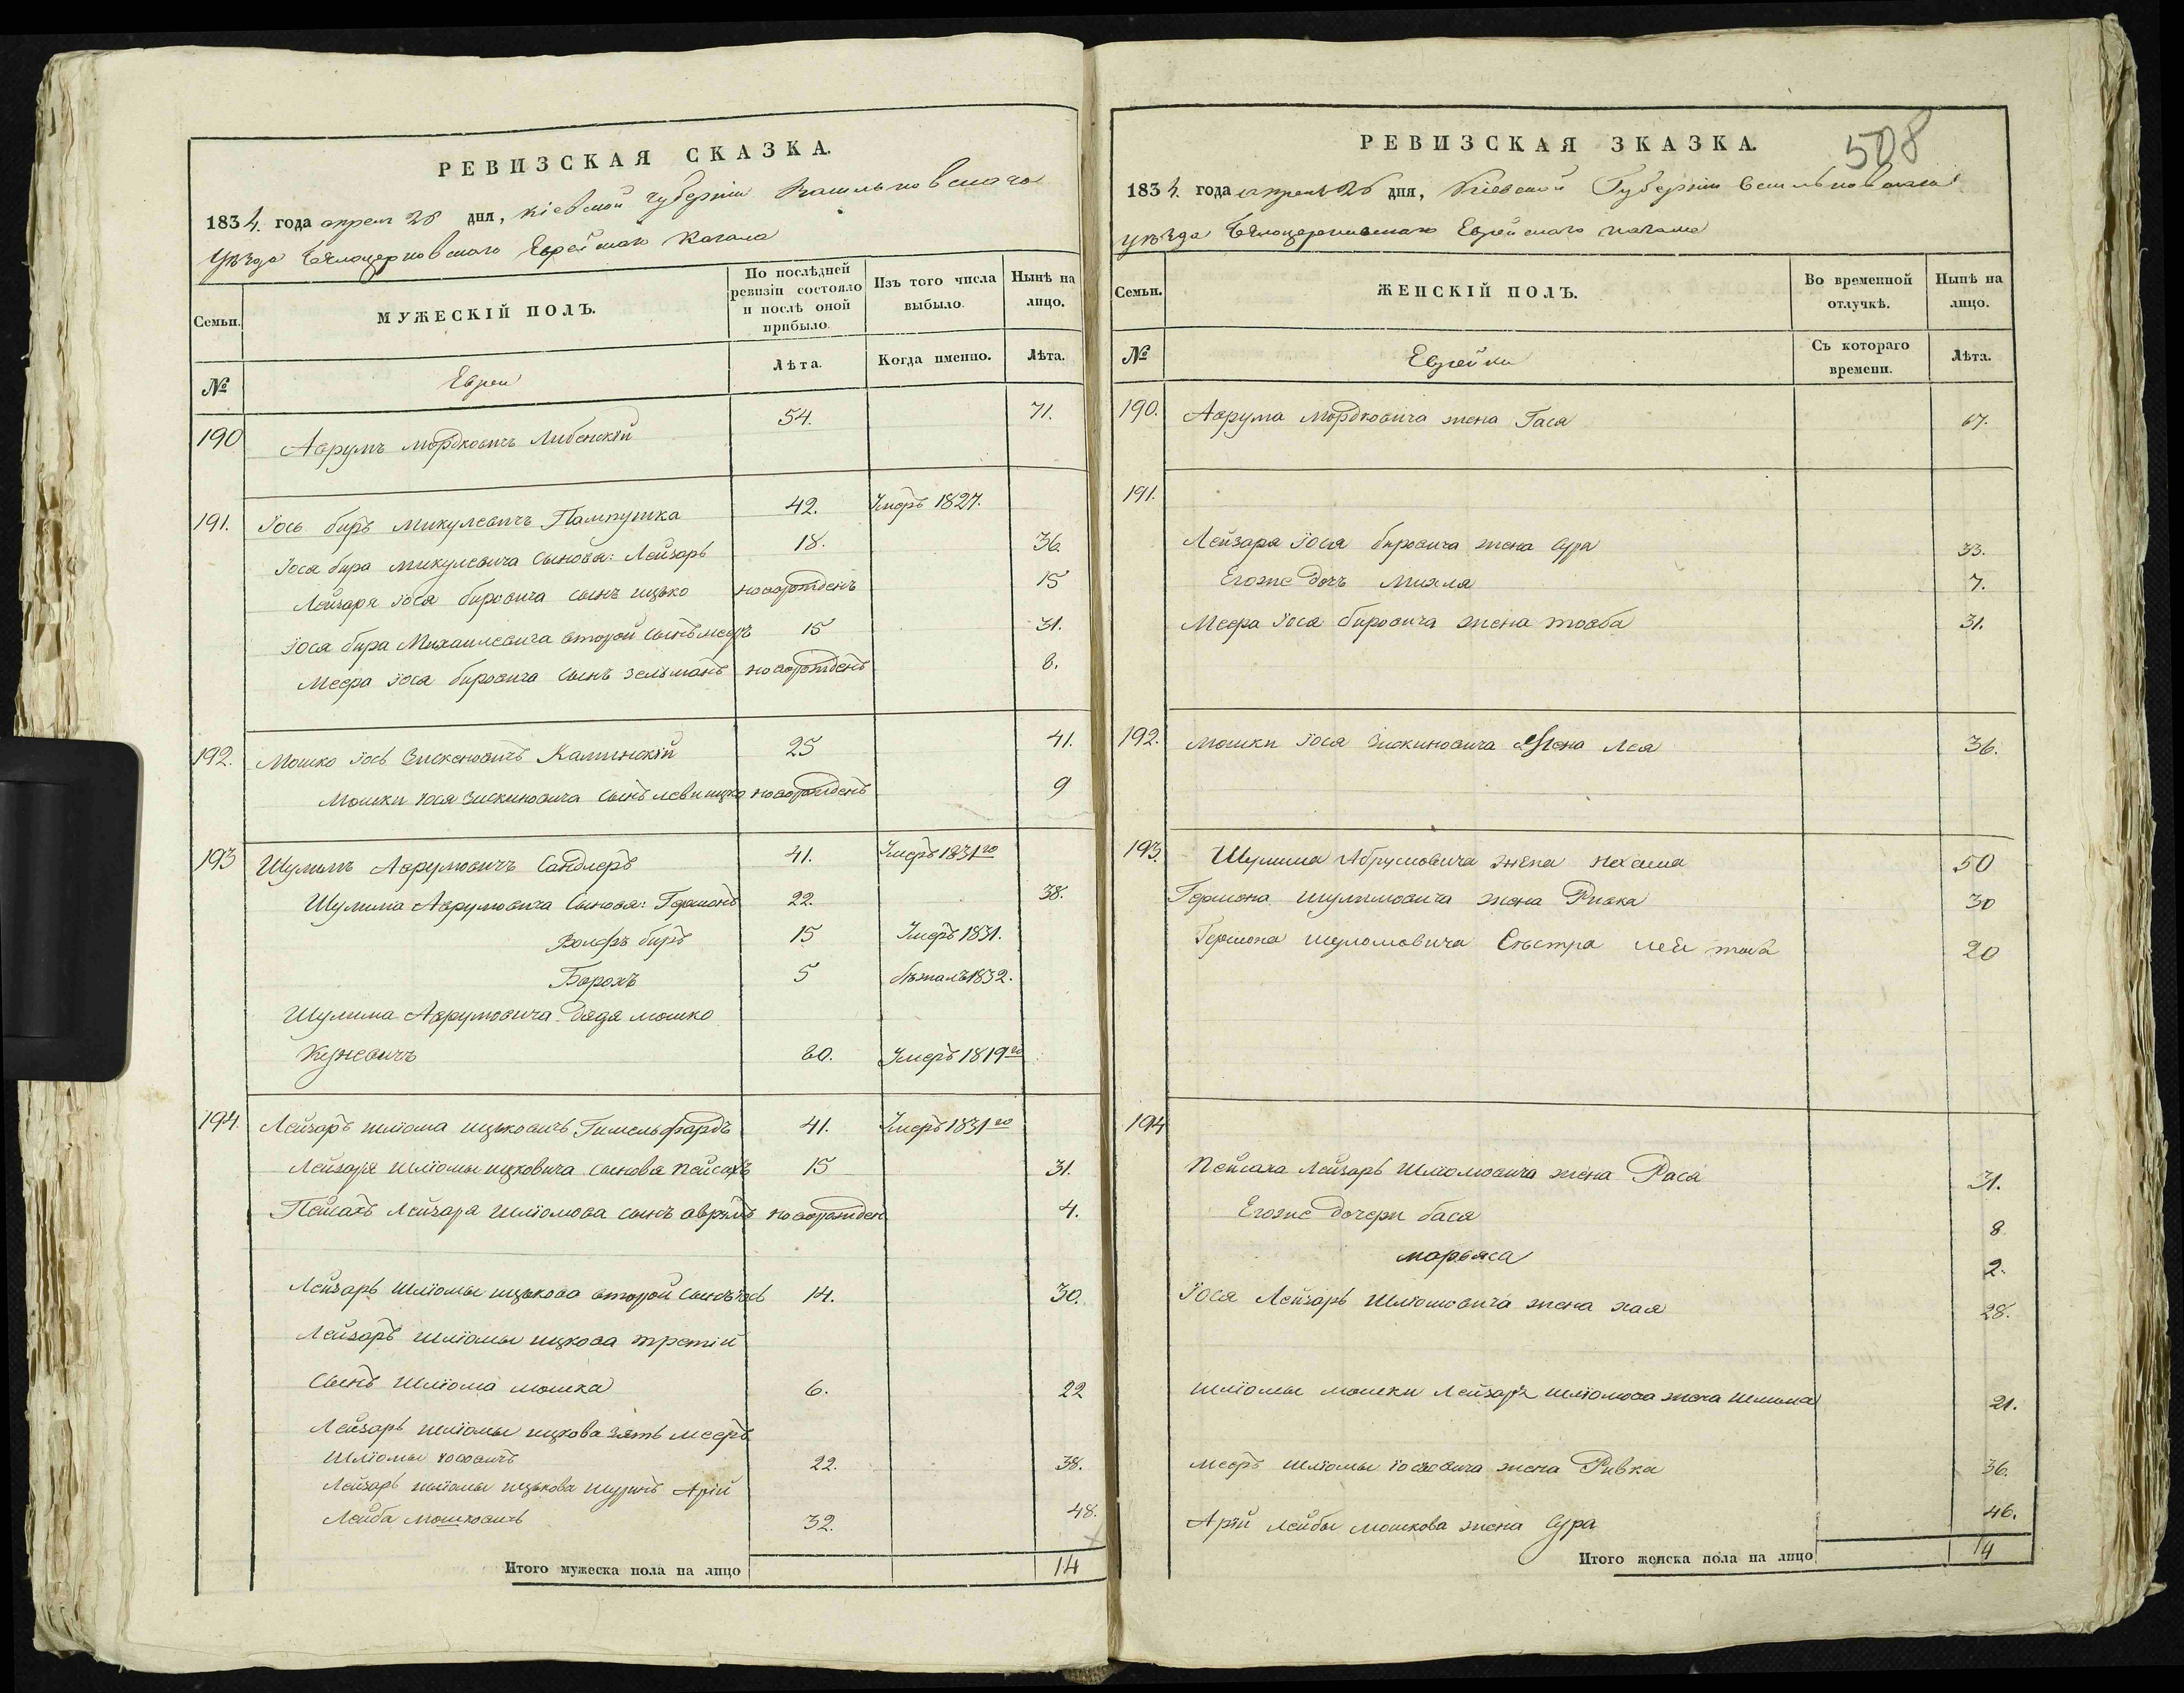 РЕВИЗСКАЯ СКАЗКА.
1834. года апреля 28 дня, кіевской губерніи Васильковскаго
уѣзда бѣлоцерковскаго Еврейскаго Кагала
Семьи.
МУЖЕСКІЙ ПОЛЪ.
По послѣдней ревизіи состояло и послѣ оной прибыло.
Изъ того числа выбыло.
Нынѣ на лицо.
№
Евреи
Лѣта.
Когда именно.
Лѣта.
190 Аврумъ мордковичъ Либенскій 54. 71.
191. Іось биръ микулевичъ Пампушка 42. Умеръ 1827.
Іося бира микулевича сыновя: Лейзаръ 18. 36
Лейзаря іося бировича сынъ ицько новорожденъ 15
Іося бира Михаилевича второй сынъ мееръ 15 31.
Меера іося бировича сынъ зельманъ новорожденъ 8.
192. Мошко іось Зискеновичъ Калинскій 25 41.
Мошки іося зискиновича сынъ леви ицко новорожденъ 9
193 Шулимъ Аврумовичъ Сандлеръ 41. Умеръ 1831го
Шулима Аврумовича Сыновя: Гершонъ 22. 38.
Волфъ биръ 15 Умеръ 1831.
Борохъ 5 бѣжалъ 1832.
Шулима Аврумовича дядя мошко
Куневичъ 60. Умеръ 1819го
194. Лейзоръ шліома ицьковичъ Гимельфардъ 41. Умеръ 1831го
Лейзоря шліомы ицковича сыновя пейсахъ 15 31.
Пейсахъ Лейзаря шліомова сынъ аврумъ новорожден 4.
Лейзаръ Шліомы ицькова второй сынъ іось 14. 30.
Лейзаръ шліомы ицкова третій
Сынъ Шліома мошка 6. 22
Лейзаръ шліомы ицкова зять мееръ
Шліомы іосовичъ 22. 38.
Лейзаръ шліомы ицькова шуринъ Арій
Лейба мошковичъ 32. 48.
Итого мужеска пола на лицо 14
508
РЕВИЗСКАЯ ЗКАЗКА.
1834. года апреля 26 дня, Кіевской Губерніи васильковскаго
уѣзда бѣлоцерковскаго Еврейскаго кагала
Семьи.
ЖЕНСКІЙ ПОЛЪ.
Во временной отлучкѣ.
Нынѣ на лицо.
№
Еврейки
Съ котораго времени.
Лѣта.
190. Аврума мордковича жена Гася 67.
191.
Лейзаря іося бировича жена сура 33.
Егоже дочъ михля 7.
Меера іося бировича жена товба 31.
192. мошки іося зискиновича жена лея 36.
193. Шулима Абрумовича жена нехама 50
Гершона шулимовича жена Ривка 30
Гершона шуломовича Сѣстра леи товба 20
194
Пейсаха Лейзаръ Шліомовича жена Рася 31.
Егоже дочери бася 8
марьяся 2.
Іося Лейзаръ Шліомовича жена хая 28.
шліомы мошки Лейзаря шліомова жена шлима 21.
мееръ шліомы іосьовича жена Ривка 36.
Арій Лейбы мошкова жена сура 46.
Итого женска пола на лицо 14